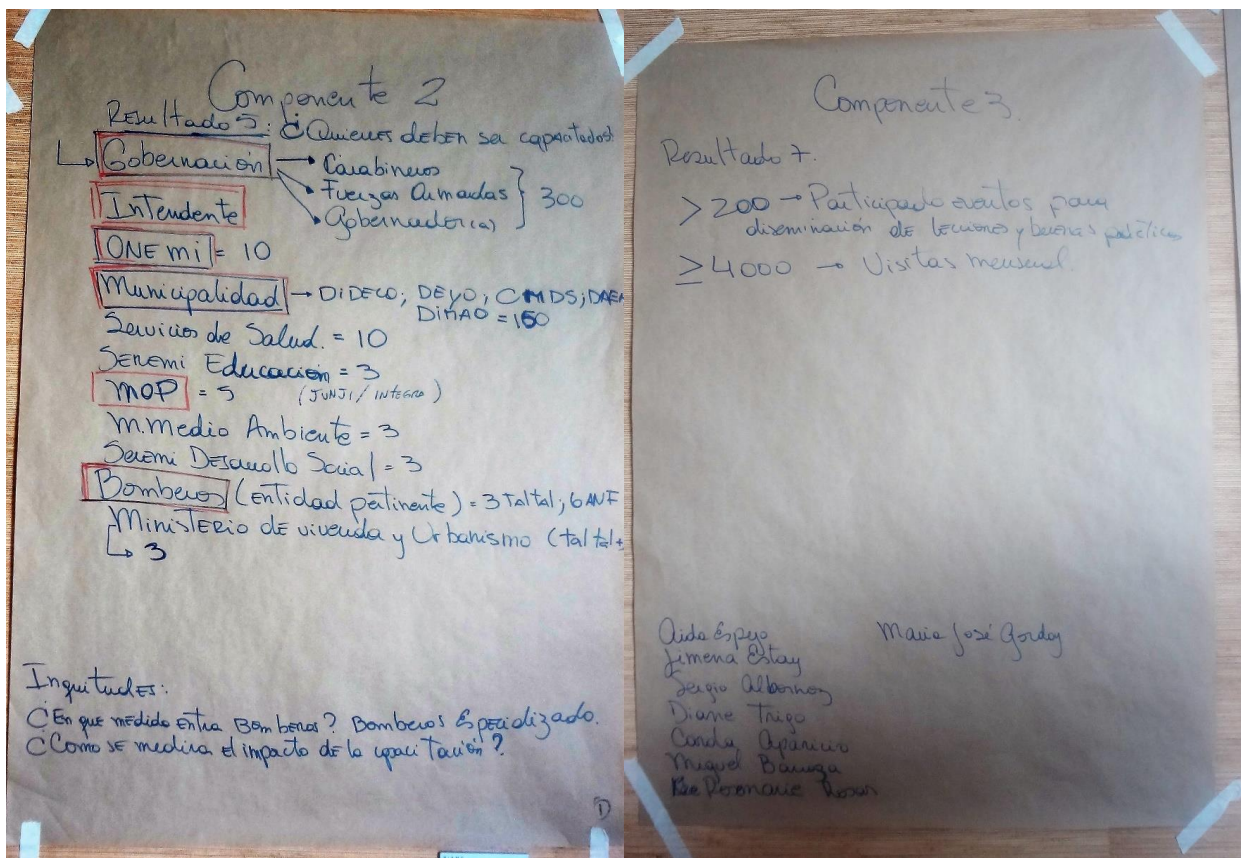 Componente 2
Resultado 5: ¿Quienes deben ser capacitados?
Gobernación → Carabineros
Fuerzas Armadas
Gobernador(a)
300
Intendente
ONEmi = 10
Municipalidad → DIDECO; DEYO; CMDS; DAEM
DIMAO = 150
Servicios de Salud. = 10
Seremi Educación = 3
(JUNJI / INTEGRA)
MOP = 5
M. Medio Ambiente = 3
Seremi Desarrollo Social = 3
Bomberos (Entidad pertinente) = 3 Taltal; 6 ANF
Ministerio de vivienda y Urbanismo (taltal+
↳ 3
Inquitudes:
¿En que medido entra Bomberos? Bomberos Especializado.
¿Como se medira el impacto de la capacitación?
1
Componente 3
Resultado 7.
> 200 → Participado eventos para
diseminación de lecciones y buenas prácticas
≥ 4000 → Visitas mensual.
Aida Espejo
Jimena Estay
Sergio Albornoz
Diane Trigo
Aparicio
Miguel Barraza
Rosemarie
Maria José Godoy